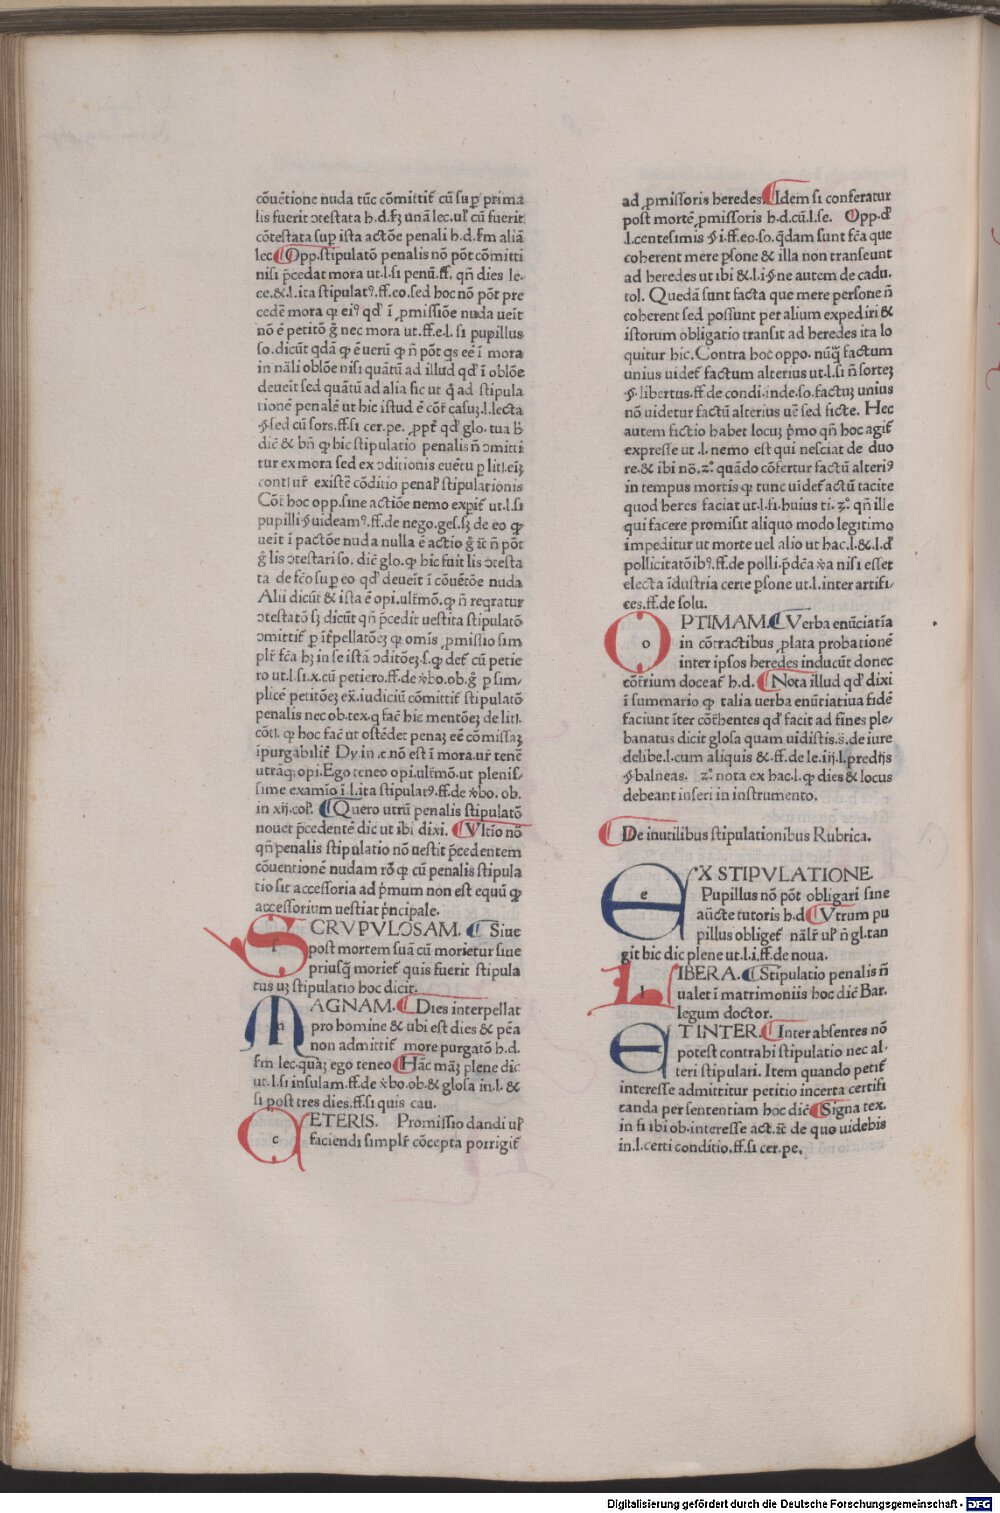 cōuētione nuda tūc cōmittit̄ cū sup prima
lis fuerit ɔtestata h.d.ẜm unā lec.ul̓ cū fuerit
cōtestata sup ista actōe penali h.d.ẜm aliā
lec ¶ Opp.stipulatō penalis nō pōt cōmitti
nisi p̄cedat mora ut.l.si penū.ff. qn̄ dies le-
ce.&.l.ita stipulatꝰ.ff.eo.sed hoc nō pōt pre
cedē mora qꝫ eiꝰ qd̓ ī ꝓmissiōe nuda ueīt
nō ē petitō g̊ nec mora ut.ff.e.l. si pupillus
so.dicūt qdā qꝫ ē uerū qꝫ n̄ pōt qs eē ī mora
in nāli oblōe nisi quātū ad illud qd̓ ī oblōe
deueīt sed quātū ad alia sic ut q̄ ad stipula
tionē penalē ut hic istud ē cōt̄ casuꝫ.l.lecta
.§.sed cū sors.ff.si cer.pe. ꝓpt̄ qd̓ glo. tua h̓
dic̄ & bn̄ qꝫ hic stipulatio penalis n̄ ɔmitti
tur ex mora sed ex ɔditionis euētu p lit.l.eiꝫ
conti ur̄ existē cōditio penal̓ stipulationis
Cōt̄ hoc opp.sine actiōe nemo expit̄ ut.l.si
pupilli.§.uideamꝰ.ff.de nego.ges.sꝫ de eo qꝫ
ueīt ī pactōe nuda nulla ē actio g̊ ūt n̄ pōt
g̊ lis ɔtestari so. dic̄ glo.qꝫ hic fuit lis ɔtesta
ta de fc̄o sup eo qd̓ deueīt ī cōuētōe nuda
Alii dicūt & ista ē opi.ult̄mō.qꝫ n̄ reqratur
ɔtestatō sꝫ dicūt qn̄ p̄cedit uestita stipulatō
ɔmittit̄ p īt̄pellatōeꝫ qꝫ omīs ꝓmissio sim
pl̄r fc̄a hꝫ in se istā ɔditōeꝫ.s.qꝫ det̄ cū petie
ro ut.l.si.x.cū petiero.ff.de ꝟbo.ob.g̊ p sim/
plicē petitōeꝫ ex̄.iudiciū cōmittit̄ stipulatō
penalis nec ob.tex.q fac̄ hic mentōeꝫ de liti.
cōtī. qꝫ hoc fac̄ ut ostēdet penaꝫ eē cōmissaꝫ
īpurgabilit̄ Dy.in .c nō est ī mora.ur̄ tenē
utrāqꝫ opi.Ego teneo opi.ult̄mō.ut plenis/
sime examio ī.l.ita stipulatꝰ.ff.de ꝟbo. ob.
in xij.col̓. ¶ Quero utrū penalis stipulatō
nouet p̄cedentē dic ut ibi dixi. ¶ Vltīo nō
qn̄ penalis stipulatio nō uestit p̄cedentem
cōuentionē nudam rō qꝫ cū penalis stipula
tio sit accessoria ad p̄mum non est equū qꝫ
accessorium uestiat p̄ncipale.
SCRVPVLOSAM. ¶ Siue
post mortem suā cū morietur siue
priusq̄ moriet̄ quis fuerit stipula
tus uꝫ stipulatio hoc dicit.
MAGNAM. ¶ Dies interpellat
pro homine & ubi est dies & pēa
non admittit̄ more purgatō h.d.
ẜm lec.quaꝫ ego teneo ¶ Hāc māꝫ plene dic
ut.l.si insulam.ff.de ꝟbo.ob.& glosa in.l. &
si post tres dies.ff.si quis cau.
CETERIS. Promissio dandi ul̓
faciendi simpl̄r cōcepta porrigit̄
ad ꝓmissoris heredes. ¶ Idem si conferatur
post mortē ꝓmissoris h.d.cū.l.se. Opp.d̓
.l.centesimis.§.i.ff.eo.so.q̄dam sunt fc̄a que
coherent mere ꝑsone & illa non transeunt
ad heredes ut ibi &.l.i.§.ne autem de cadu.
tol. Quedā sunt facta que mere persone n̄
coherent sed possunt per alium expediri &
istorum obligatio transit ad heredes ita lo
quitur hic. Contra hoc oppo. nūq̄ factum
unius uidet̄ factum alterius ut.l.si n̄ sorteꝫ
.§.libertus.ff.de condi.inde.so.factuꝫ unius
nō uidetur factū alterius uē sed ficte. Hec
autem fictio habet locuꝫ p̄mo qn̄ hoc agit̄
expresse ut .l. nemo est qui nesciat de duo
re.& ibi nō.z.º quādo cōfertur factū alteriꝰ
in tempus mortis qꝫ tunc uidet̄ actū tacite
quod heres faciat ut.l.fi.huius ti. z.º qn̄ ille
qui facere promisit aliquo modo legitimo
impeditur ut morte uel alio ut hac.l.&.l.d̓
pollicitatōibꝰ.ff.de polli.p̄dēa ꝟa nisi esset
electa īdustria certe ꝑsone ut.l.inter artifi/
ces.ff.de solu.
OPTIMAM. ¶ Verba enūciatīa
in cōtractibus ꝓlata probationē
inter ipsos heredes inducūt donec
cōt̄rium doceat̄ h.d. ¶ Nota illud qd̓ dixi
ī summario qꝫ talia uerba enūtiatiua fidē
faciunt īter cōt̄hentes qd̓ facit ad fines ple/
banatus dicit glosa quam uidistis.s̄.de iure
delibe.l.cum aliquis &.ff.de le.iij.l.prediis
.§.balneas. z.º nota ex hac.l.qꝫ dies & locus
debeant inseri in instrumento.
¶ De inutilibus stipulationibus Rubrica.
EX STIPVLATIONE.
Pupillus nō pōt obligari sine
aūcte tutoris h.d ¶ Vtrum pu
pillus obliget̄ nāl̄r ul̓ n̄ gl.tan
git hic dic plene ut.l.i.ff.de noua.
LIBERA. ¶ Stipulatio penalis n̄
ualet ī matrimoniis hoc dic̄ Bar.
legum doctor.
ET INTER. ¶ Inter absentes nō
potest contrahi stipulatio nec al-
teri stipulari. Item quando petit̄
interesse admittitur petitio incerta certifi
canda per sententiam hoc dic̄ ¶ Signa tex.
in fi ibi ob.interesse act.ūt de quo uidebis
in.l.certi conditio.ff.si cer.pe.
Digitalisierung gefördert durch die Deutsche Forschungsgemeinschaft - DFG